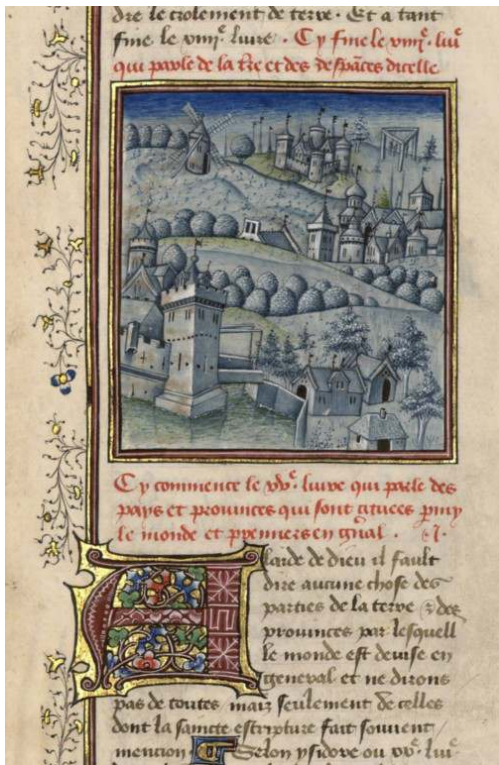 dre le crolement de terre. Et a tant
fine le xiiiie. livre. Cy fine le xiiiie. liue
qui parle de la tre et des despances dicelle
Cy commence le xve. livre qui parle des
pays et prouinces qui sont situees pmy
le monde et premiers en gnal. .i.
A laide de dieu il fault
dire aucune chose des
parties de la terre & des
prouinces par lesquell
le monde est deuise en
general et ne dirons
pas de toutes maiz seulement de celles
dont la saincte escripture fait souuent
mention Selon ysidore ou xve liue